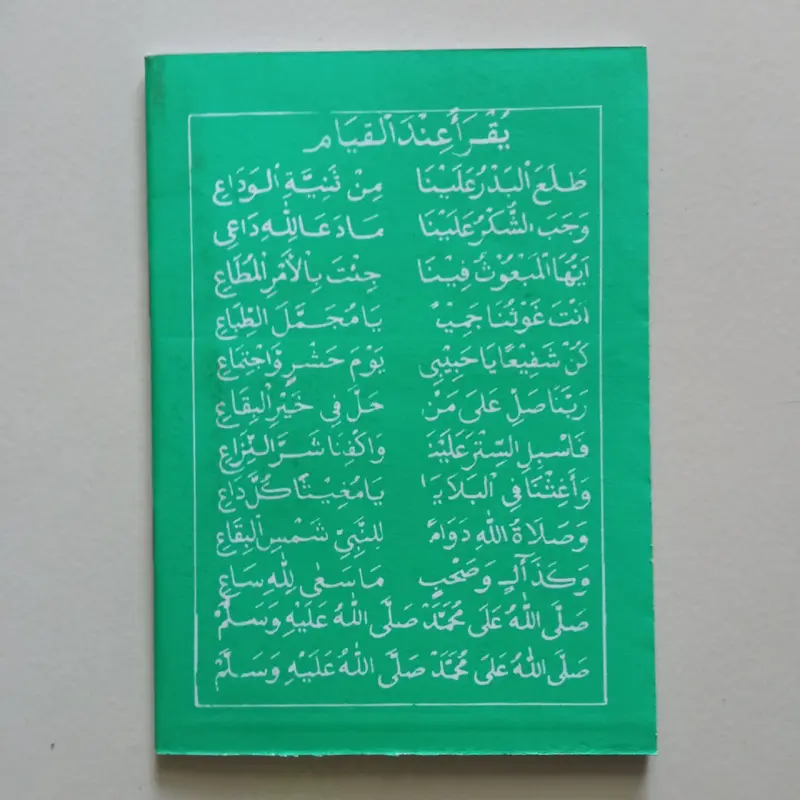 يُقْرَأُ عِنْدَ الْقِيَامِ
طَلَعَ الْبَدْرُ عَلَيْنَا مِنْ ثَنِيَّةِ الْوَدَاعِ
وَجَبَ الشُّكْرُ عَلَيْنَا مَا دَعَا لِلّٰهِ دَاعِى
اَيُّهَا الْمَبْعُوْثُ فِيْنَا جِئْتَ بِالْأَمْرِ الْمُطَاعِ
اَنْتَ غَوْثُنَا جَمِيْعًا يَا مُجَمَّلَ الطِّبَاعِ
كُنْ شَفِيْعًا يَا حَبِيْبِى يَوْمَ حَشْرٍ وَاجْتِمَاعِ
رَبَّنَا صَلِّ عَلَى مَنْ حَلَّ فِى خَيْرِ الْبِقَاعِ
فَاسْبِلِ السِّتْرَ عَلَيْنَا وَاكْفِنَا شَرَّ النِّزَاعِ
وَأَغِثْنَا فِى الْبَلَايَا يَا مُغِيْثًا كُلَّ دَاعٍ
وَصَلَاةُ اللّٰهِ دَوَامً لِلنَّبِيِّ شَمْسِ الْبِقَاعِ
وَكَذَا آلٍ وَصَحْبٍ مَا سَعٰى لِلّٰهِ سَاعٍ
صَلَّى اللّٰهُ عَلَى مُحَمَّدْ صَلَّى اللّٰهُ عَلَيْهِ وَسَلَّمْ
صَلَّى اللّٰهُ عَلَى مُحَمَّدْ صَلَّى اللّٰهُ عَلَيْهِ وَسَلَّمْ